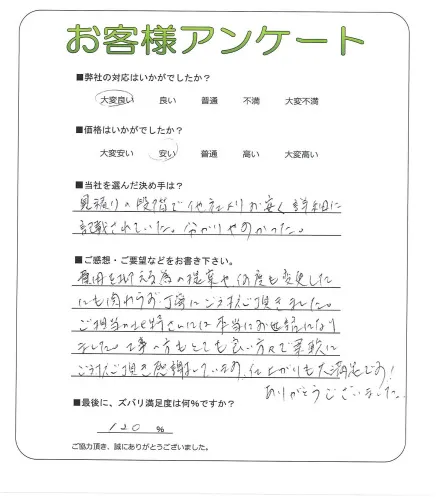 お客様アンケート
■弊社の対応はいかがでしたか？
大変良い 良い 普通 不満 大変不満
■価格はいかがでしたか？
大変安い 安い 普通 高い 大変高い
■当社を選んだ決め手は？
見積りの段階で他社よりお安く詳細に
記載されていた。分かりやすかった。
■ご感想・ご要望などをお書き下さい。
費用を抑える為の提案や何度も変更した
にも関わらず、丁寧にご対応頂きました。
ご担当の さんには本当にお世話になり
ました。工事の方もとても良い方々で柔軟に
ご対応頂き感謝しています。仕上がりも大満足です！
ありがとうございました。
■最後に、ズバリ満足度は何％ですか？
120 ％
ご協力頂き、誠にありがとうございました。